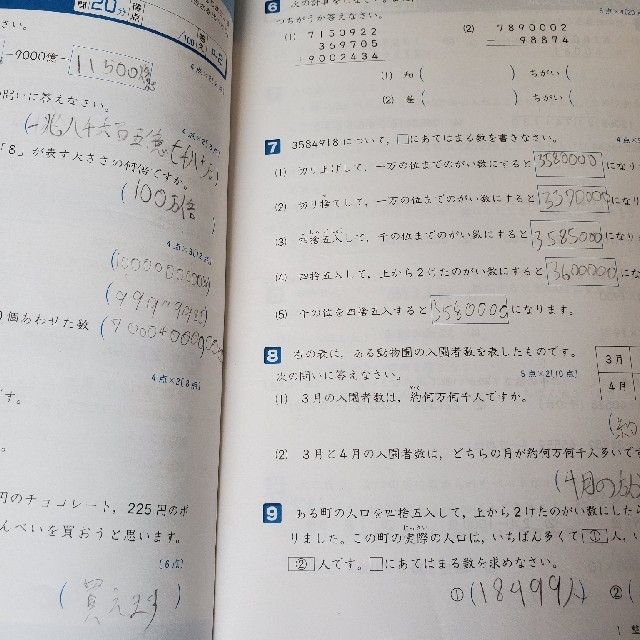 20分
/100
さい。
-9000億= 11500億
の問いに答えなさい。
「8」が表す大きさの何倍ですか。
(100万倍
個あわせた数
4点×2(8点)
です。
円のチョコレート, 225円のポ
んべいを買おうと思います。
(6点)
(買えます)
6 次の計算をしなさい。
(1) 7150922
369705
+9002434
(2) 7890002
- 98874
(1) 和( ) ちがい(
(2) 差( ) ちがい(
7 3584918について, □にあてはまる数を書きなさい。
(1) 切り上げして, 一万の位までのがい数にすると 3580000 になり
(2) 切り捨てして, 一万の位までのがい数にすると になり
(3) 四捨五入して, 千の位までのがい数にすると 3585000 になり
(4) 四捨五入して, 上から2けたのがい数にすると 3600000 にな
(5) 千の位を四捨五入すると 3580000 になります。
8 右の表は, ある動物園の入園者数を表したものです。
3月
次の問いに答えなさい。
5点×2(10点)
4月
(1) 3月の入園者数は, 約何万何千人ですか。
(約
(2) 3月と4月の入園者数は, どちらの月が約何万何千人多いで
(4月の方が
9 ある町の人口を四捨五入して, 上から2けたのがい数にしたら
りました。この町の実際の人口は, いちばん多くて ① 人, い
② 人です。□にあてはまる数を求めなさい。
①(18499人) ②(